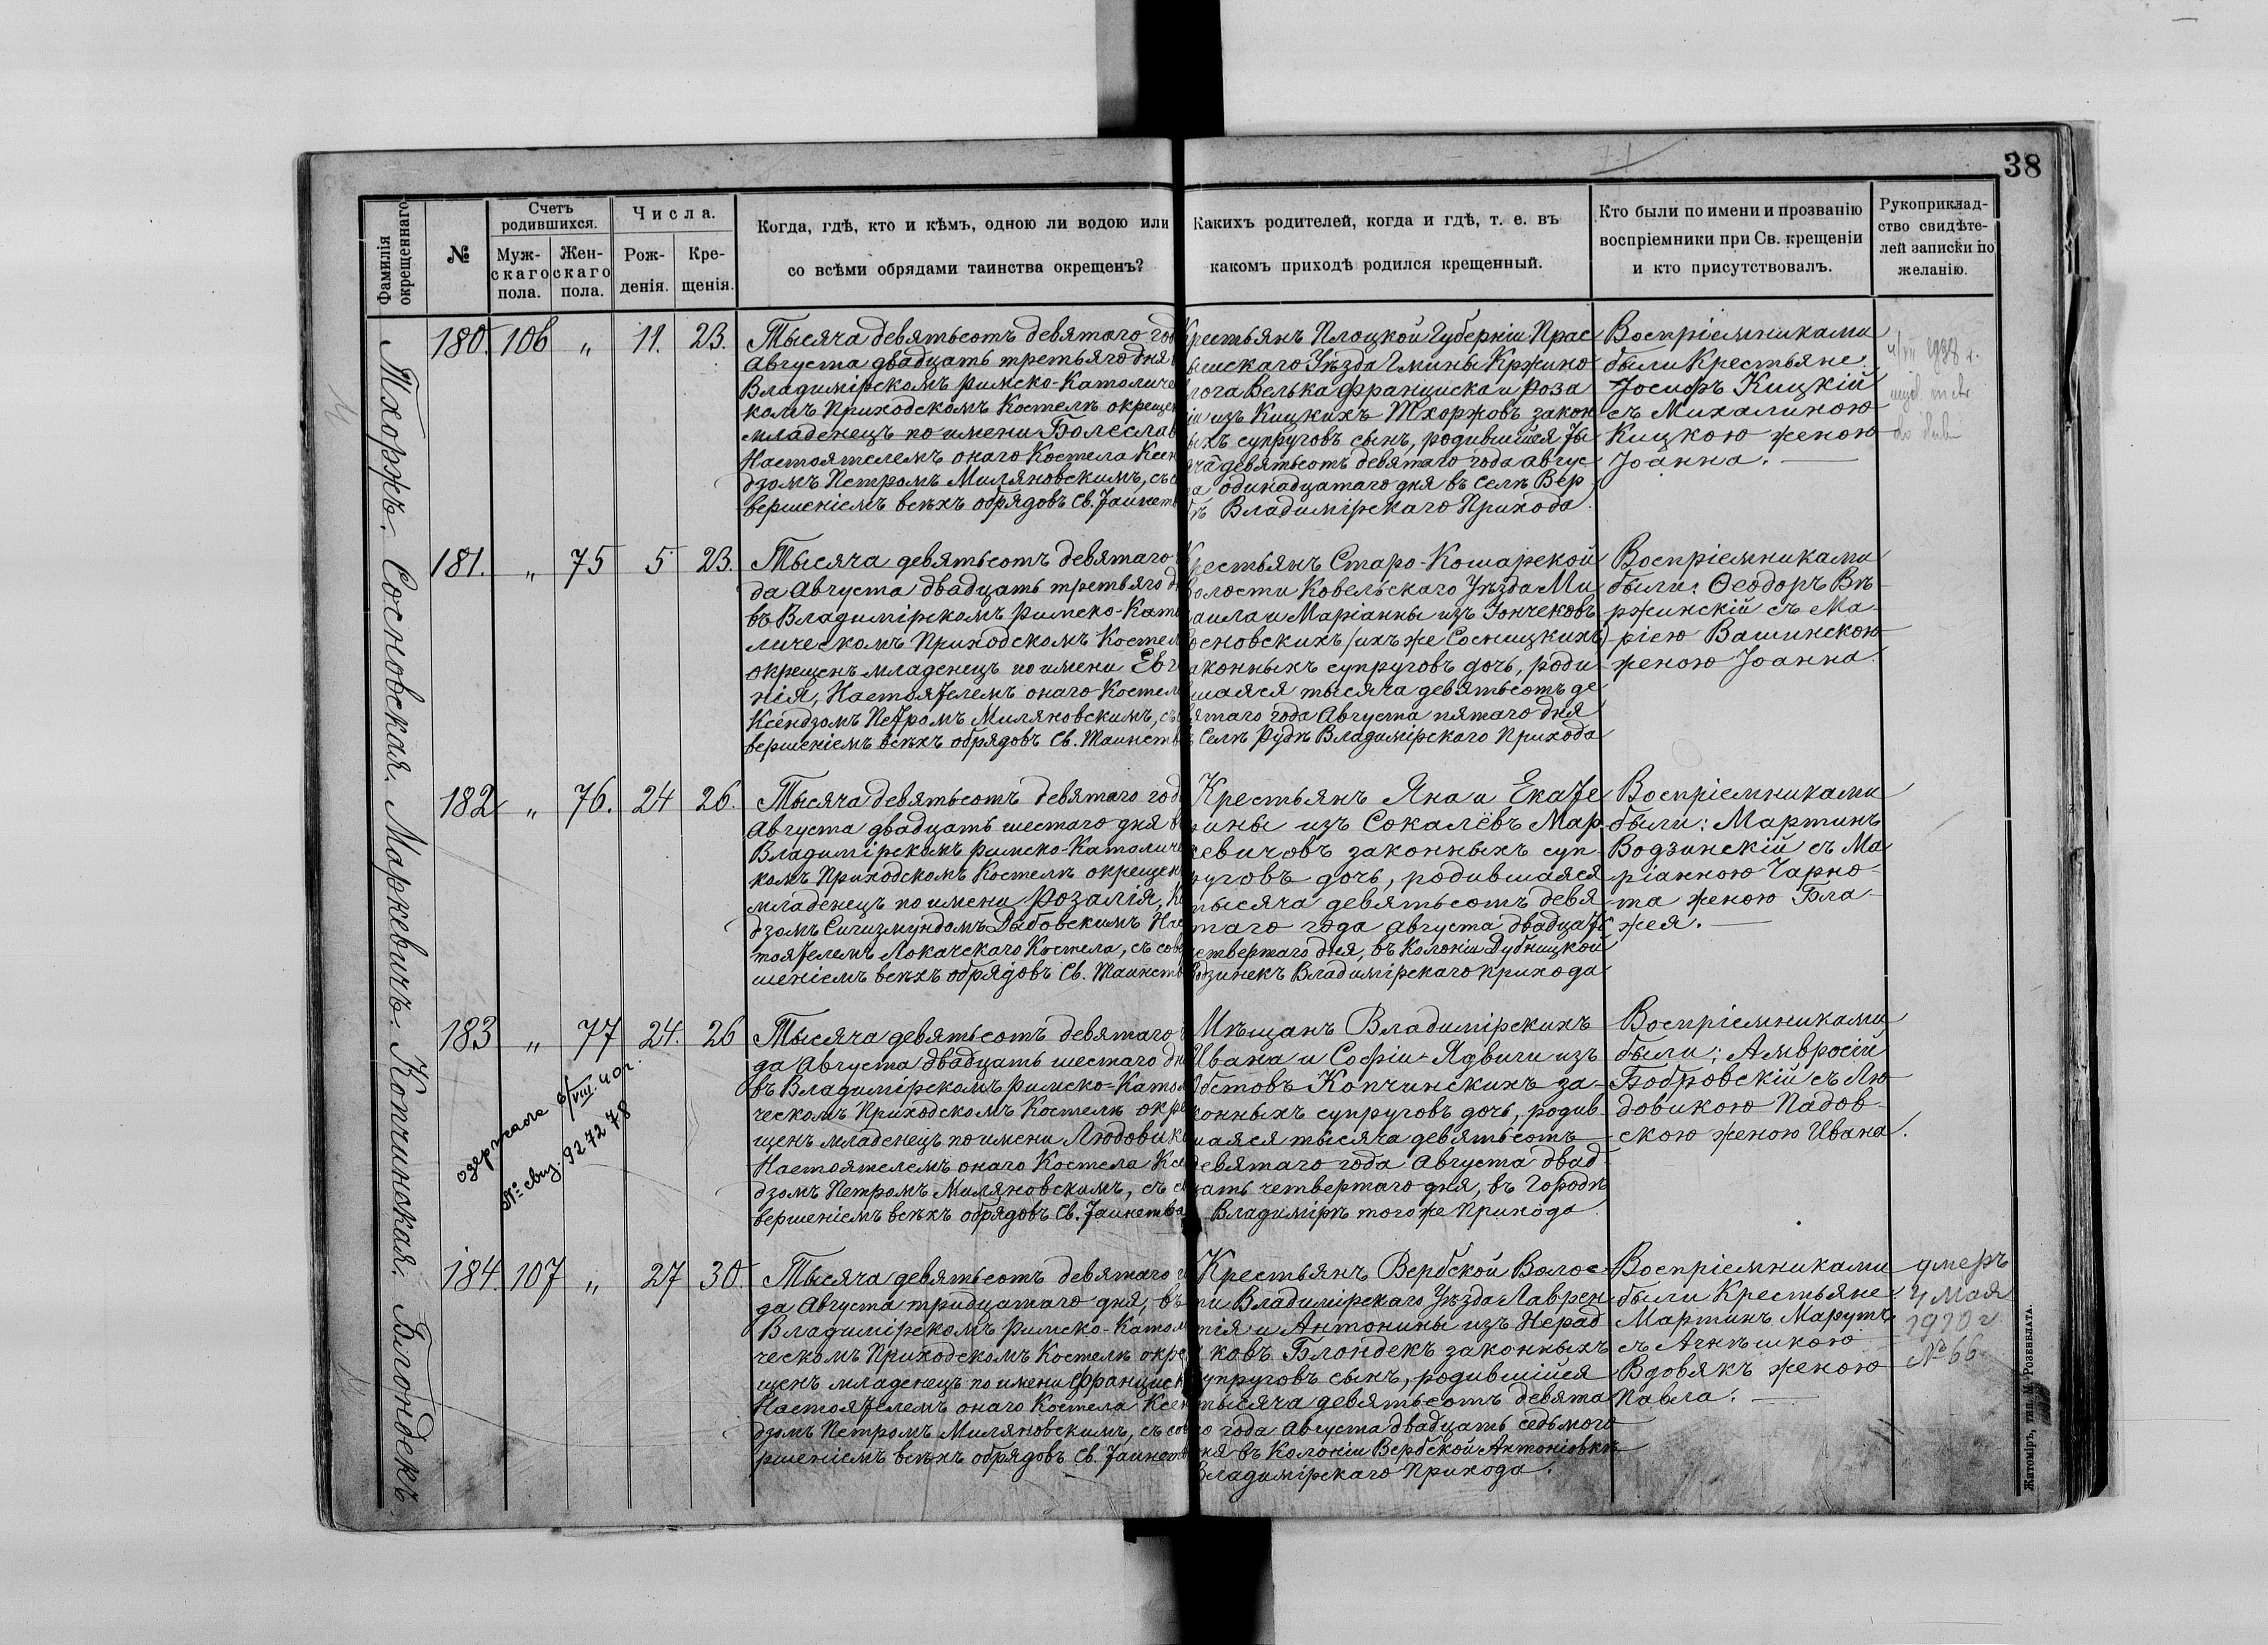 38
Фамилія окрещеннаго
№
Счетъ родившихся.
Мужскаго пола.
Женскаго пола.
Числа.
Рожденія.
Крещенія.
Когда, гдѣ, кто и кѣмъ, одною ли водою или
со всѣми обрядами таинства окрещенъ?
Какихъ родителей, когда и гдѣ, т. е. въ
какомъ приходѣ родился крещенный.
Кто были по имени и прозванію
воспріемники при Св. крещеніи
и кто присутствовалъ.
Рукоприклад-
ство свидѣте-
лей записки по
желанію.
Тхоржъ. Сосновская. Маркевичъ. Копчинская. Блондекъ
180. 106 " 11. 23.
Тысяча девятьсотъ девятаго год
Августа двадцать третьяго дня
Владимірскомъ Римско-Католиче
комъ Приходскомъ Костелѣ окрещен
младенецъ по имени Болеслав
Настоятелемъ онаго Костела Ксен
дзомъ Петромъ Миляновскимъ, съ
вершеніемъ всѣхъ обрядовъ Св. Таинств
Крестьянъ Плоцкой Губерніи Прас
нышскаго Уѣзда Гмины Кржино
лога Велька Франциска и Роза
ліи изъ Кицкихъ Тхоржовъ закон
ыхъ супруговъ сынъ, родившійся Ты
яча девятьсотъ девятаго года Авгус
та одинадцатаго дня въ Селѣ Вер
бѣ Владимірскаго Прихода.
Воспріемниками
были Крестьяне
Іосифъ Кицкій
съ Михалиною
Кицкою женою
Іоанна.
1938 г.
181. " 75 5 23.
Тысяча девятьсотъ девятаго
да Августа двадцать третьяго д
въ Владимірскомъ Римско-Като
лическомъ Приходскомъ Костел
окрещенъ младенец по имени Евге
нія, Настоятелемъ онаго Костел
Ксендзомъ Петромъ Миляновскимъ, съ
вершеніемъ всѣхъ обрядовъ Св. Таинств
Крестьянъ Старо-Кошарской
Волости Ковельскаго Уѣзда Ми
хаила и Маріанны изъ Гончековъ
Сосновскихъ /ихъ же Сосницкихъ)
законныхъ супруговъ дочь, роди
вшаяся тысяча девятьсотъ де
вятаго года Августа пятаго дня
въ Селѣ Рудѣ Владимірскаго Прихода
Воспріемниками
были: Ѳеодоръ Вѣ
ржинскій съ Ма-
ріею Вашинскою
женою Іоанна.
182 " 76. 24 26.
Тысяча девятьсотъ девятаго год
Августа двадцать шестаго дня в
Владимірскомъ Римско-Католиче
комъ Приходскомъ Костелѣ окрещен
младенец по имени Розалія, К
дзомъ Сигизмундомъ Дыбовскимъ Нас
тоятелемъ Локачскаго Костела, съ сове
шеніемъ всѣхъ обрядовъ Св. Таинств
Крестьянъ Яна и Екате
рины изъ Сокалёвъ Мар
кевичовъ законныхъ суп-
руговъ дочь, родившаяся
тысяча девятьсотъ девя-
таго года Августа двадцать
четвертаго дня, въ Колоніи Дубницкой
Водзинекъ Владимірскаго прихода
Воспріемниками
были: Мартинъ
Водзинскій съ Ма
ріанною Чарно-
та женою Бла-
жея.
183 " 77 24. 26
одержала 6/VIII. 40 г.
№ свид. 927278
Тысяча девятьсотъ девятаго
да Августа двадцать шестаго дн
въ Владимірскомъ Римско-Катол
ческомъ Приходскомъ Костелѣ окре
щенъ младенец по имени Людовик
Настоятелемъ онаго Костела Ксе
дзомъ Петромъ Миляновскимъ, съ со
вершеніемъ всѣхъ обрядовъ Св. Таинства
Мѣщанъ Владимірскихъ
Ивана и Софіи-Ядвиги изъ
Обстовъ Копчинскихъ за-
конныхъ супруговъ дочь, родив
шаяся тысяча девятьсотъ
девятаго года Августа двад-
цать четвертаго дня, въ Городѣ
Владимірѣ тогоже Прихода.
Воспріемниками
были: Амвросій
Бобровскій съ Лю
довикою Падов-
скою женою Ивана.
184. 107 " 27 30.
Тысяча девятьсотъ девятаго г
да Августа тридцатаго дня, въ
Владимірскомъ Римско-Катол
ческомъ Приходскомъ Костелѣ окре
щенъ младенец по имени Францискъ
Настоятелемъ онаго Костела Ксен
дзомъ Петромъ Миляновскимъ, съ сове
ршеніемъ всѣхъ обрядовъ Св. Таинств
Крестьянъ Вербской Волос-
ти Владимірскаго Уѣзда Лаврен
тія и Антонины изъ Нерад
ковъ Блондекъ законныхъ
супруговъ сынъ, родившійся
тысяча девятьсотъ девята
го года Августа двадцать седьмого
дня въ Колоніи Вербской Антоніовкѣ
Владимірскаго Прихода.
Воспріемниками
были Крестьяне:
Мартинъ Марутъ
съ Агнѣшкою
Вдовякъ женою
Павла.
умеръ
4 Мая
1910 г
№ 66
Житоміръ, тип. М. Розенблата.